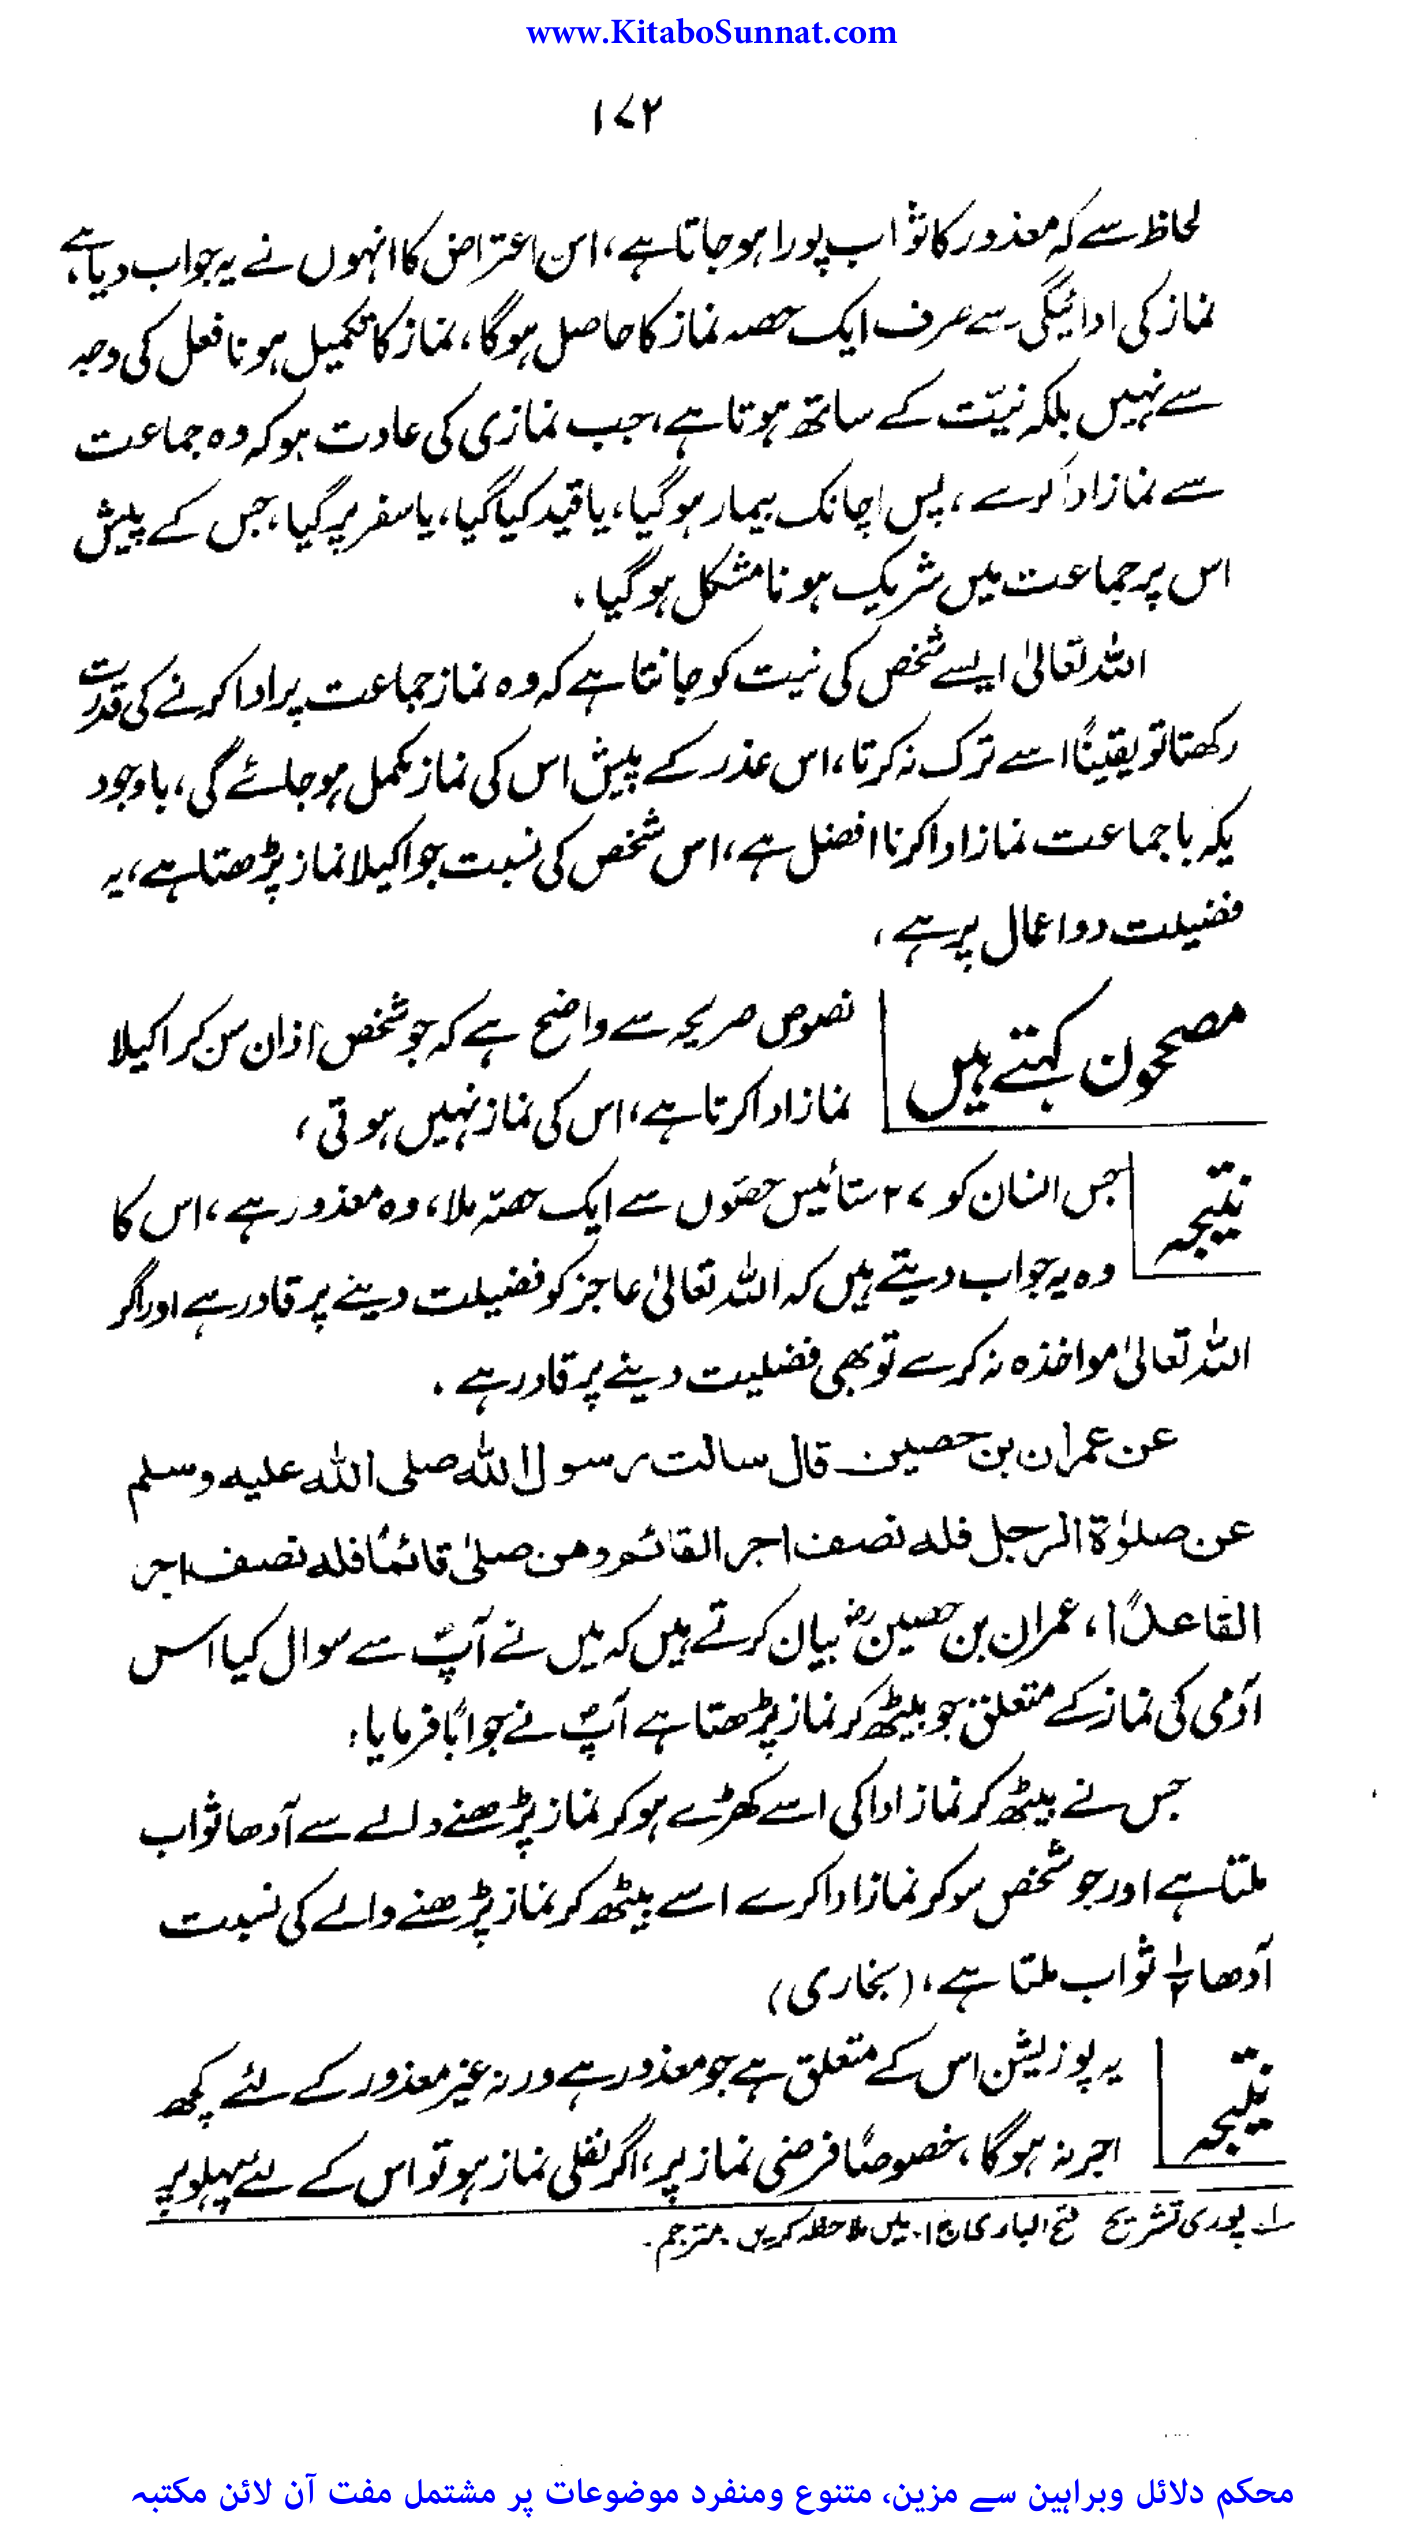 www.KitaboSunnat.com
۱۷۲
لحاظ سے کہ معذور کا ثواب پورا ہو جاتا ہے، اس اعتراض کا انہوں نے یہ جواب دیا ہے،
نماز کی ادائیگی سے صرف ایک حصہ نماز کا حاصل ہوگا، نماز کا تکمیل ہونا فعل کی وجہ
سے نہیں بلکہ نیّت کے ساتھ ہوتا ہے، جب نمازی کی عادت ہو کہ وہ جماعت
سے نماز ادا کرے، پس اچانک بیمار ہوگیا، یا قید کیا گیا، یا سفر پر گیا، جس کے پیش
اس پر جماعت میں شریک ہونا مشکل ہوگیا،
اللہ تعالیٰ ایسے شخص کی نیت کو جانتا ہے کہ وہ نماز جماعت پر ادا کرنے کی قدرت
رکھتا تو یقیناً اسے ترک نہ کرتا، اس عذر کے پیش اس کی نماز مکمل ہو جائے گی، باوجود
یکہ باجماعت نماز ادا کرنا افضل ہے، اس شخص کی نسبت جو اکیلا نماز پڑھتا ہے، یہ
فضیلت دو اعمال پر ہے،
مصححون کہتے ہیں نصوص صریحہ سے واضح ہے کہ جو شخص اذان سن کر اکیلا
نماز ادا کرتا ہے، اس کی نماز نہیں ہوتی،
نتیجہ جس انسان کو ۲۷ ستائیس حصّوں سے ایک حصّہ ملا، وہ معذور ہے، اس کا
وہ یہ جواب دیتے ہیں کہ اللہ تعالیٰ عاجز کو فضیلت دینے پر قادر ہے اور اگر
اللہ تعالیٰ مواخذہ نہ کرے تو بھی فضلیت دینے پر قادر ہے۔
عن عمران بن حصین قال سالت رسول اللہ صلی اللہ علیہ وسلم
عن صلوٰۃ الرجل فلہ نصف اجر القائم ومن صلیٰ قائمًا فلہ نصف اجر
القاعدًا، عمران بن حصینؓ بیان کرتے ہیں کہ میں نے آپؐ سے سوال کیا اس
آدمی کی نماز کے متعلق جو بیٹھ کر نماز پڑھتا ہے آپؐ نے جوابًا فرمایا:
جس نے بیٹھ کر نماز ادا کی اسے کھڑے ہو کر نماز پڑھنے والے سے آدھا ثواب
ملتا ہے اور جو شخص سو کر نماز ادا کرے اسے بیٹھ کر نماز پڑھنے والے کی نسبت
آدھا ½ ثواب ملتا ہے، (بخاری)
نتیجہ یہ پوزیشن اس کے متعلق ہے جو معذور ہے ورنہ غیر معذور کے لئے کچھ
اجر نہ ہوگا، خصوصًا فرضی نماز پر، اگر نفلی نماز ہو تو اس کے لئے پہلو پر
۱؎ پوری تشریح فتح الباری ج۱۰ میں ملاحظہ کریں۔ مترجم۔
محکم دلائل وبراہین سے مزین، متنوع ومنفرد موضوعات پر مشتمل مفت آن لائن مکتبہ